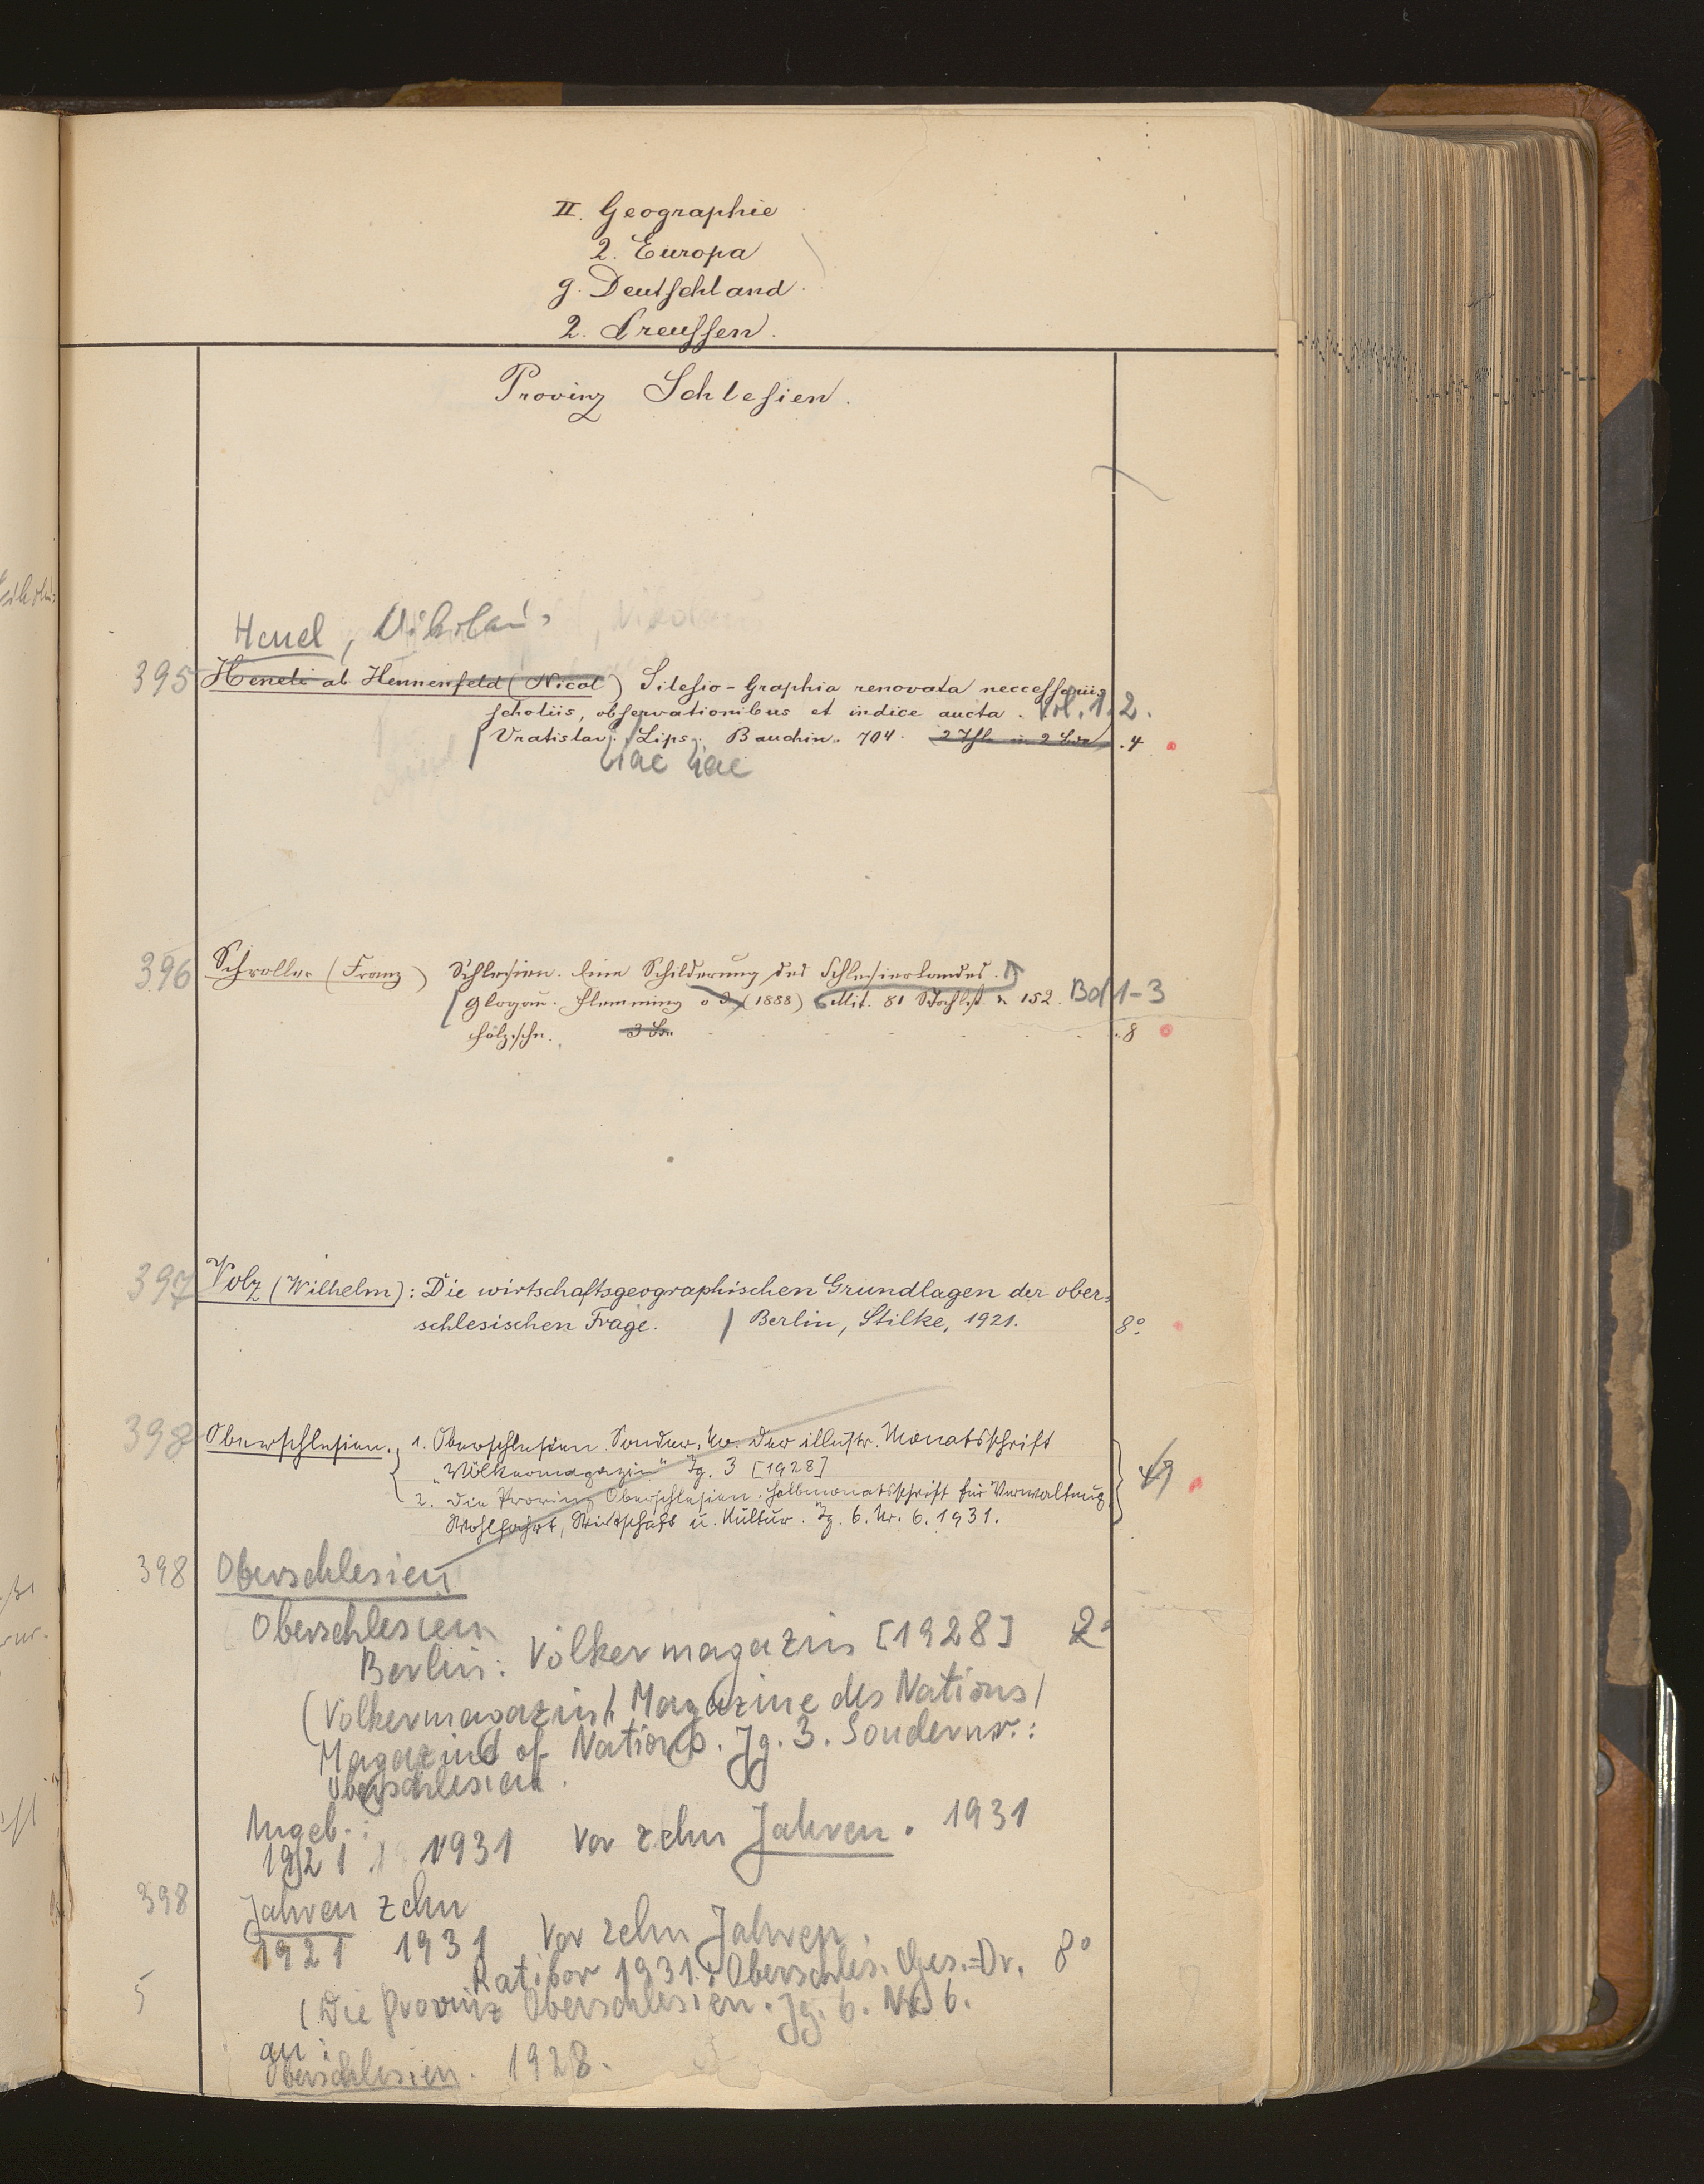 II. Geographie
2. Europa
g. Deutschland.
2. Preussen.
Provinz Schlesien.
Henel, Nikolaus
395 Heneli ab Hennenfeld (Nicol) Silesio-Graphia renovata neccessariis
scholiis, observationibus et indice aucta. Vol. 1. 2.
Vratislav. Lips. Bauchin. 704. 2 Thle in 2 Bde .4
iae iae
396 Schroller (Franz) Schlesien. Eine Schilderung des Schlesierlandes.
Glogau. Flemming o J. (1888) Mit. 81 Stahlst. u 152. Bd 1-3
Holzschn. 3 Bde. .8
397 Volz (Wilhelm): Die wirtschaftsgeographischen Grundlagen der ober-
schlesischen Frage. Berlin, Stilke, 1921. 8°
398 Oberschlesien. 1. Oberschlesien. Sonder-Nr. der illustr. Monatsschrift
"Völkermagazin" Jg. 3 [1928]
2. Die Provinz Oberschlesien. Halbmonatsschrift für Verwaltung,
Wohlfahrt, Wirtschaft u. Kultur. Jg. 6. Nr. 6. 1931.
398 Oberschlesien
Oberschlesien
Berlin: Völkermagazin [1928] 2°
(Völkermagazin / Magazine des Nations /
Magazine of Nations. Jg. 3. Sondernr.:
Oberschlesien.
Angeb.:
1921 1931 Vor zehn Jahren. 1931
398 Jahren zehn
1921 1931 Vor zehn Jahren.
Ratibor 1931: Oberschles. Ges.-Dr. 8°
5 (Die Provinz Oberschlesien. Jg. 6. Nr 6.
an:
Oberschlesien. 1928.